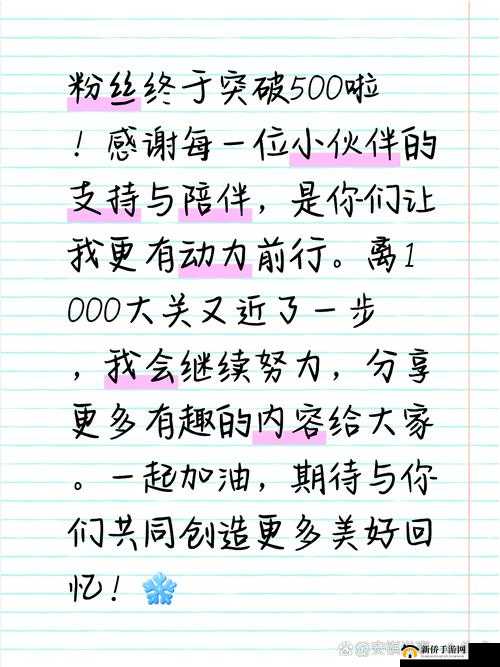 粉丝终于突破500啦
！感谢每一位小伙伴的
支持与陪伴，是你们让
我更有动力前行。离1
000大关又近了一步
，我会继续努力，分享
更多有趣的内容给大家
。一起加油，期待与你
们共同创造更多美好回
忆！
新侨手游网